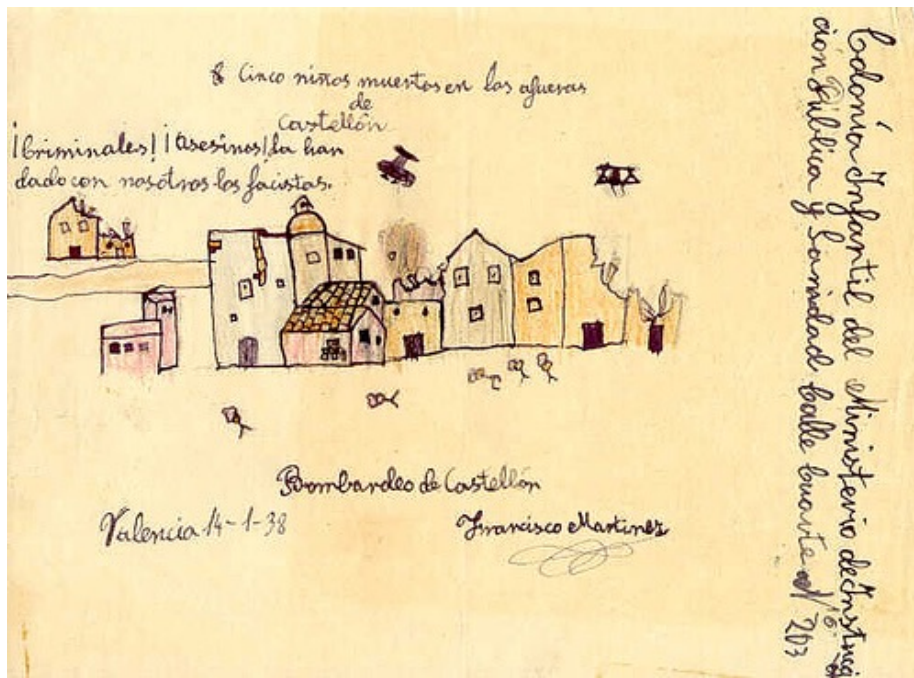 Cinco niños muertos en las afueras
de
Castellón
¡Criminales! ¡Asesinos! La han
dado con nosotros los facistas.
Bombardeo de Castellón
Valencia 14-1-38
Francisco Martinez
Colonia Infantil del Ministerio de Instruc
ción Pública y Sanidad Calle Cuarte Nº 203